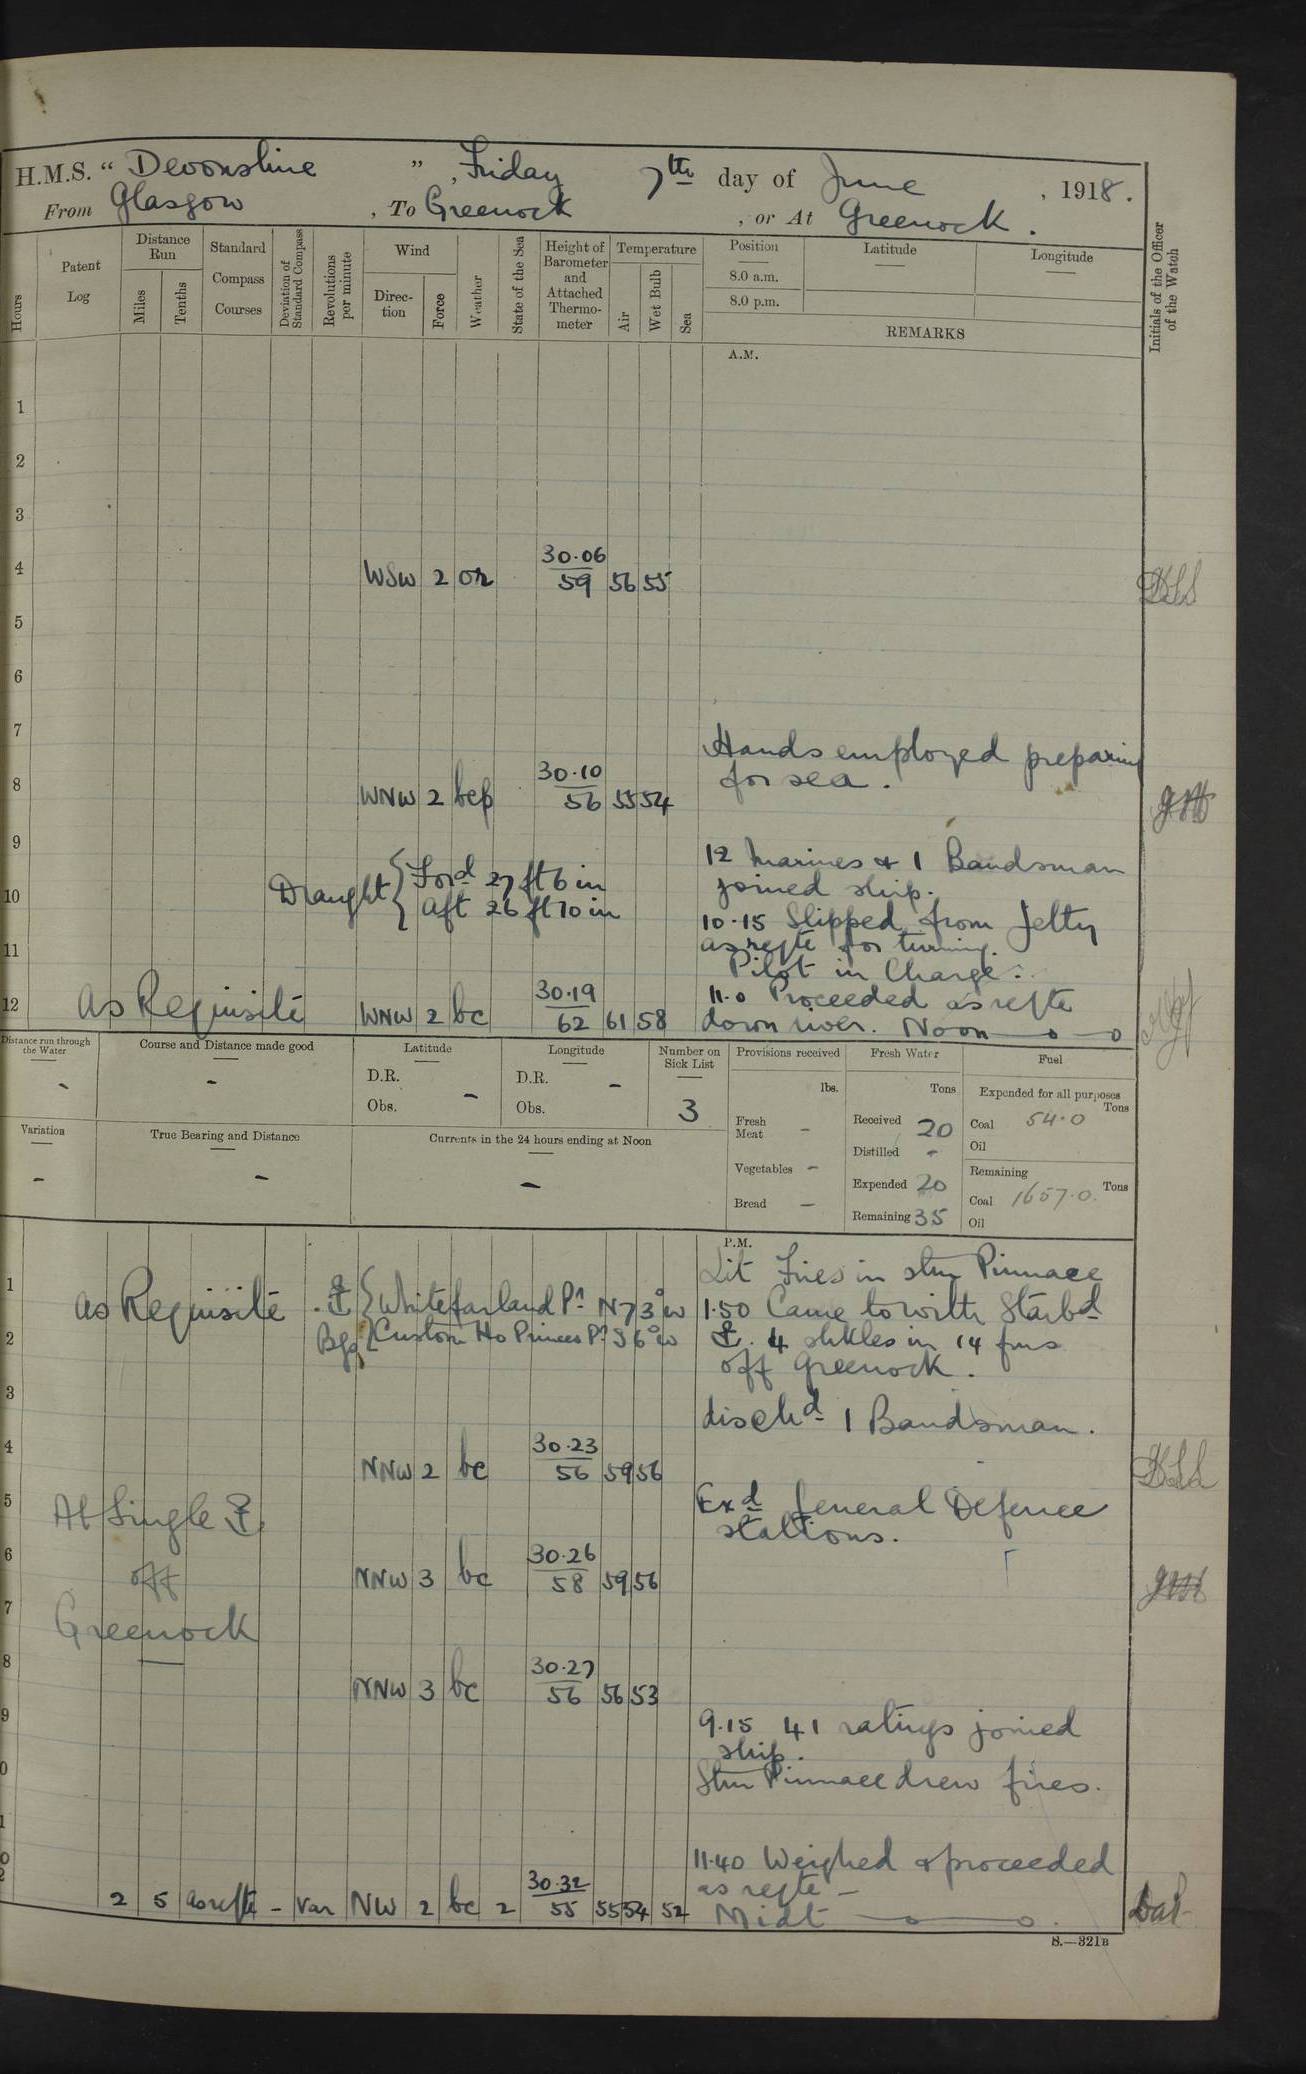 H.M.S. “ Devonshire ” , Friday 7th day of June , 1918.
From Glasgow , To Greenock , or At Greenock .
Hours
Patent Log
Distance Run
Miles
Tenths
Standard Compass Courses
Deviation of Standard Compass
Revolutions per minute
Wind
Direction
Force
Weather
State of the Sea
Height of Barometer and Attached Thermometer
Temperature
Air
Wet Bulb
Sea
Position
8.0 a.m.
8.0 p.m.
Latitude
Longitude
REMARKS
Initials of the Officer of the Watch
A.M.
1
2
3
4 WSW 2 or 30.06 59 56 55
5
6
7
Hands employed preparing
for sea.
8 WNW 2 bcp 30.10 56 55 54
9
12 Marines & 1 Bandsman
joined ship.
10 Draught { Ford 27 ft 6 in
Aft 26 ft 10 in
10.15 Slipped from Jetty
as reqte for turning.
11
Pilot in Charge.
11.0 Proceeded as reqte
12 As Requisite WNW 2 bc 30.19 62 61 58 down river. Noon
Distance run through the Water
-
Course and Distance made good
-
Latitude
D.R.
Obs. -
Longitude
D.R. -
Obs.
Number on Sick List
3
Provisions received
lbs.
Fresh Meat -
Vegetables -
Bread -
Fresh Water
Tons
Received 20
Distilled -
Expended 20
Remaining 35
Fuel
Expended for all purposes
Tons
Coal 54.0
Oil
Remaining
Tons
Coal 1657.0
Oil
Variation
-
True Bearing and Distance
-
Currents in the 24 hours ending at Noon
-
P.M.
Lit Fires in stm Pinnace
1 as Requisite ⚓ { Whitefarland Pt N73°W 1.50 Came to with Starbd
2 Bgs { Custom Ho Princes Pr S6°W ⚓. 4 shkles in 14 fms
off Greenock.
3
dischd 1 Bandsman.
4 NNW 2 bc 30.23 56 59 56
5 At Single ⚓
Exd General Defence
stations.
6 off NNW 3 bc 30.26 58 59 56
7 Greenock
8 NNW 3 bc 30.27 56 56 53
9
9.15 41 ratings joined
ship.
0
Stm Pinnace drew fires.
1
11.40 Weighed & proceeded
as reqte -
2 2 5 as reqte - Var NW 2 bc 2 30.32 55 55 54 52 Midt
S.—321B